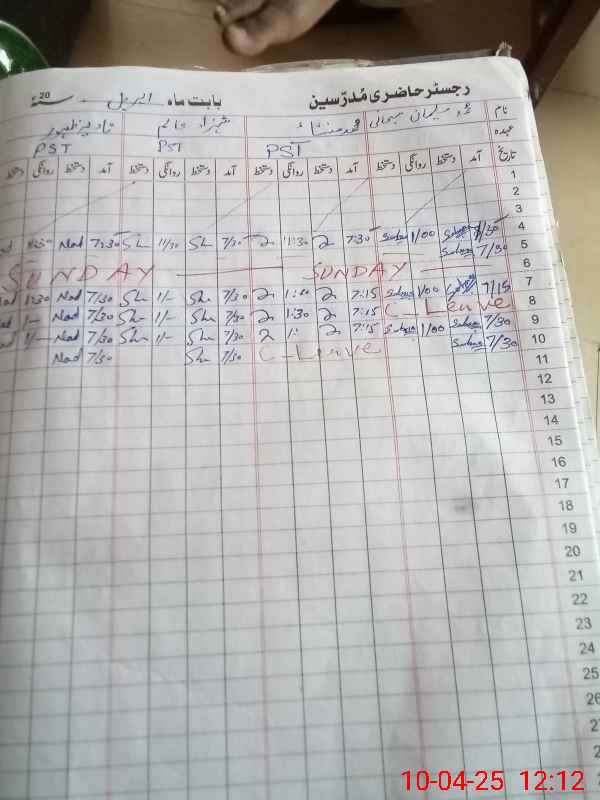 رجسٹر حاضری مُدرّسین بابت ماہ اپریل سنہ 20
نام محمد سلیمان محمد منشاء شہزاد عالم نادیہ ظہور
عہدہ PST PST PST
تاریخ آمد دستخط روانگی دستخط آمد دستخط روانگی دستخط آمد دستخط روانگی دستخط آمد دستخط روانگی دستخط
1
2
3
4 7/30 1/00 7:30 11:30 7/30 Sh 11/30 Sh 7:30 Nad
5 7/30
6 SUNDAY SUNDAY
7 7/15 1/00 7:15 1:30 7/30 Sh 1/- Sh 7/30 Nad 1:30
8 C-Leave 7:15 1:30 7/30 Sh 1/- Sh 7/30 Nad 1/-
9 7/30 1/00 7:15 1: 7/30 Sh 1/- Sh 7/30 Nad 1/-
10 7/30 C-Leave 7/30 Sh 7/30 Nad
11
12
13
14
15
16
17
18
19
20
21
22
23
24
25
26
10-04-25 12:12